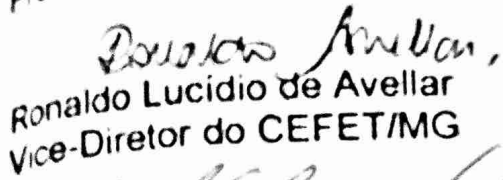 Ronaldo Avellar,
Ronaldo Lucídio de Avellar
Vice-Diretor do CEFET/MG